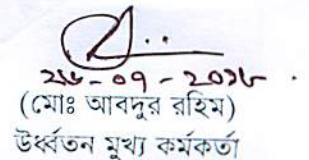 ২৬-০৭-২০১৮
(মোঃ আবদুর রহিম)
উর্ধ্বতন মুখ্য কর্মকর্তা